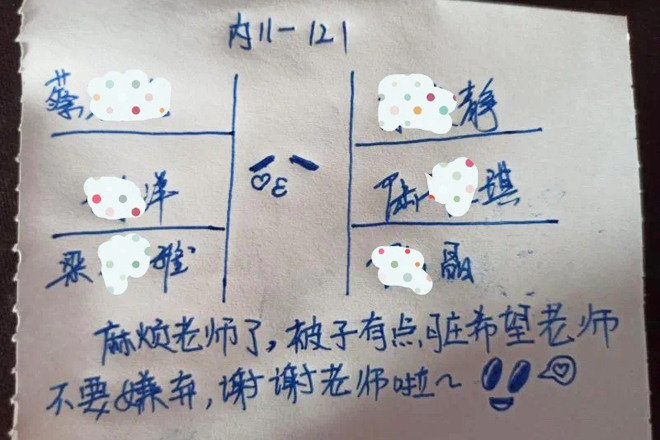 内11-121
蔡
静
洋
陆 琪
梁 雅
融
麻烦老师了,被子有点脏希望老师
不要嫌弃,谢谢老师啦~